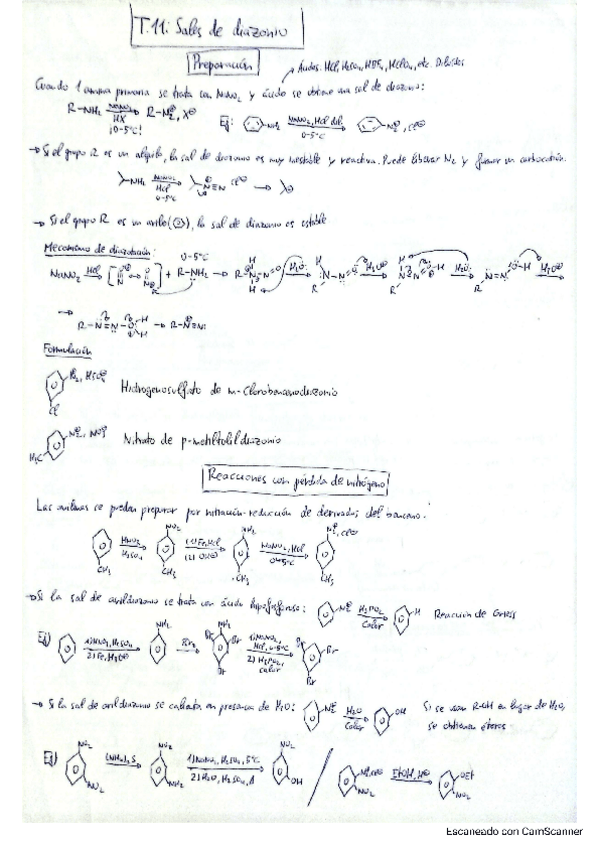 T.11: Sales de diazonio
Preparación
Ácidos: HCl, H₂SO₄, HBF₄, HClO₄, etc. Diluidos
Cuando 1 amina primaria se trata con NaNO₂ y ácido se obtiene una sal de diazonio:
R-NH₂ NaNO₂ HX ¡0-5ºC! R-N₂⊕, X⊖ Ej: NH₂ NaNO₂, HCl dil. 0-5ºC N₂⊕, Cl⊖
→ Si el grupo R es un alquilo, la sal de diazonio es muy inestable y reactiva. Puede liberar N₂ y formar un carbocatión.
NH₂ NaNO₂ HCl 0-5ºC N≡N Cl⊖ →
→ Si el grupo R es un arilo, la sal de diazonio es estable
Mecanismo de diazotación:
0-5ºC
NaNO₂ HCl + R-NH₂ →
R-N=N-O-H → R-N≡N:
Formulación
N₂, HSO₄⊖ Cl Hidrogenosulfato de m-clorobencenodiazonio
N₂⊕, NO₃⊖ H₃C Nitrato de p-metiltolildiazonio
Reacciones con pérdida de nitrógeno
Las anilinas se pueden preparar por nitración-reducción de derivados del benceno:
CH₃ HNO₃ H₂SO₄ NO₂ CH₃ (1) Fe, HCl (2) OH⊖ NH₂ CH₃ NaNO₂, HCl 0-5ºC N₂⊕, Cl⊖ CH₃
→ Si la sal de arildiazonio se trata con ácido hipofosforoso: N₂⊕ H₃PO₂ Calor H Reacción de Griess
Ej) 1) HNO₃, H₂SO₄ 2) Fe, H₃O⊕ NH₂ Br₂ NH₂ Br Br Br 1) NaNO₂, HCl, 0-5ºC 2) H₃PO₂, calor Br Br Br
→ Si la sal de arildiazonio se calienta en presencia de H₂O: N₂⊕ H₂O Calor OH Si se usan R-OH en lugar de H₂O,
se obtienen éteres
Ej) NO₂ NO₂ (NH₄)₂S NO₂ NH₂ 1) NaNO₂, H₂SO₄, 5ºC 2) H₂O, H₂SO₄, Δ NO₂ OH / NO₂ EtOH, H⊕ OEt NO₂
Escaneado con CamScanner